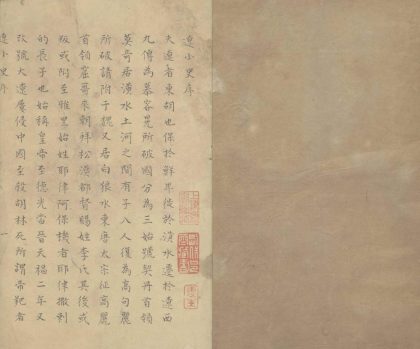 遼小史序
夫遼者東胡也保於鮮卑徙於潢水遷於遼西
九傳為慕容晃所破國分為三始號契丹首領
莫奇居潢水土河之間有子八人復為高句麗
所破請附于魏又居白狼水東唐太宗征高麗
首領窟哥來朝拜松漠都督賜姓李氏其後或
叛或附至雅里始姓耶律阿保機者耶律撒剌
的長子也始稱皇帝至德光當晉天福二年又
改號大遼屢侵中國至殺胡林死所謂帝羓者
遼小史序
一